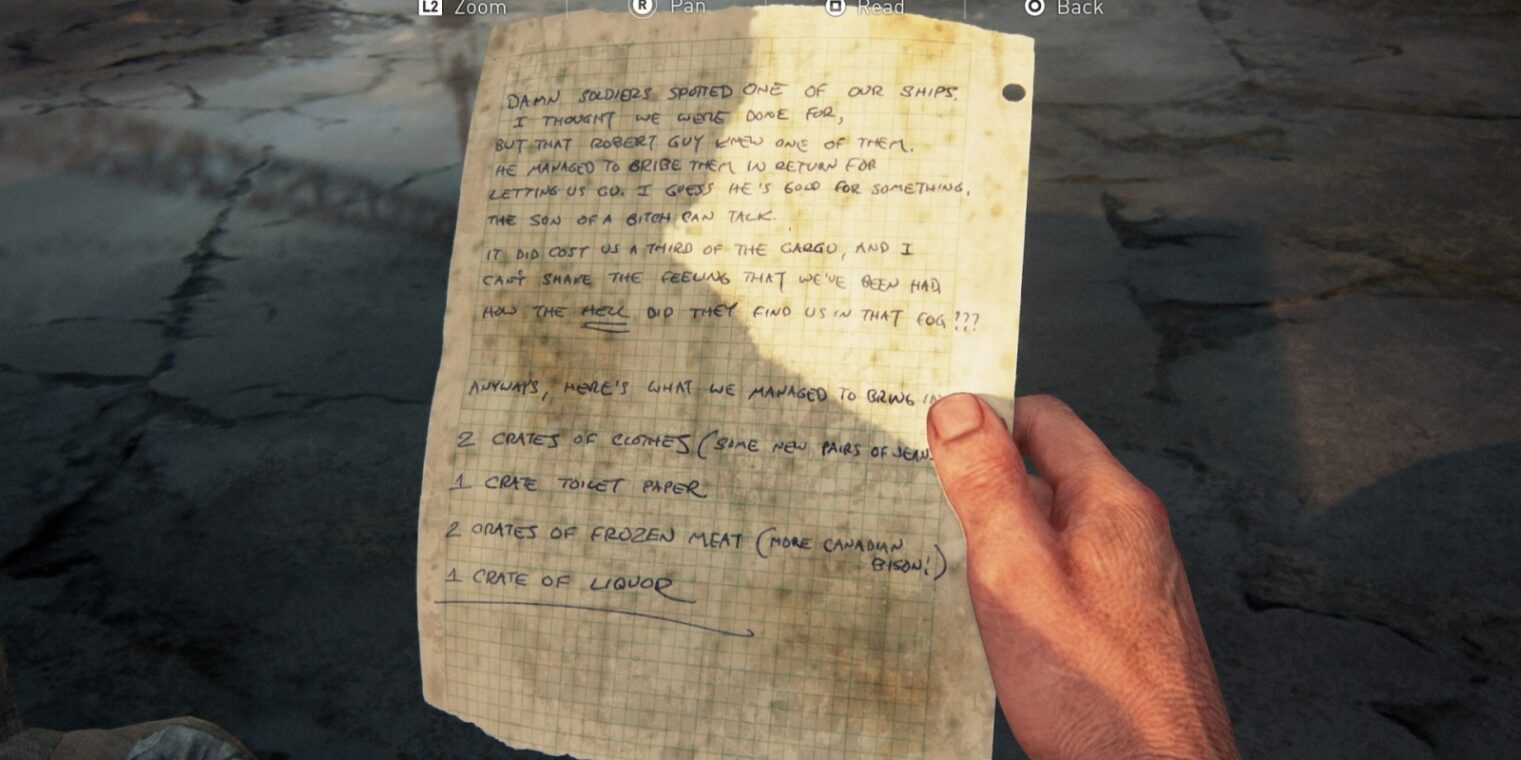 L2 Zoom R Pan Read Back
DAMN SOLDIERS SPOTTED ONE OF OUR SHIPS.
I THOUGHT WE WERE DONE FOR,
BUT THAT ROBERT GUY KNEW ONE OF THEM.
HE MANAGED TO BRIBE THEM IN RETURN FOR
LETTING US GO. I GUESS HE'S GOOD FOR SOMETHING.
THE SON OF A BITCH CAN TALK.
IT DID COST US A THIRD OF THE CARGO, AND I
CAN'T SHAKE THE FEELING THAT WE'VE BEEN HAD.
HOW THE HELL DID THEY FIND US IN THAT FOG???
ANYWAYS, HERE'S WHAT WE MANAGED TO BRING IN
2 CRATES OF CLOTHES (SOME NEW PAIRS OF JEAN
1 CRATE TOILET PAPER
2 CRATES OF FROZEN MEAT (MORE CANADIAN
BISON!)
1 CRATE OF LIQUOR